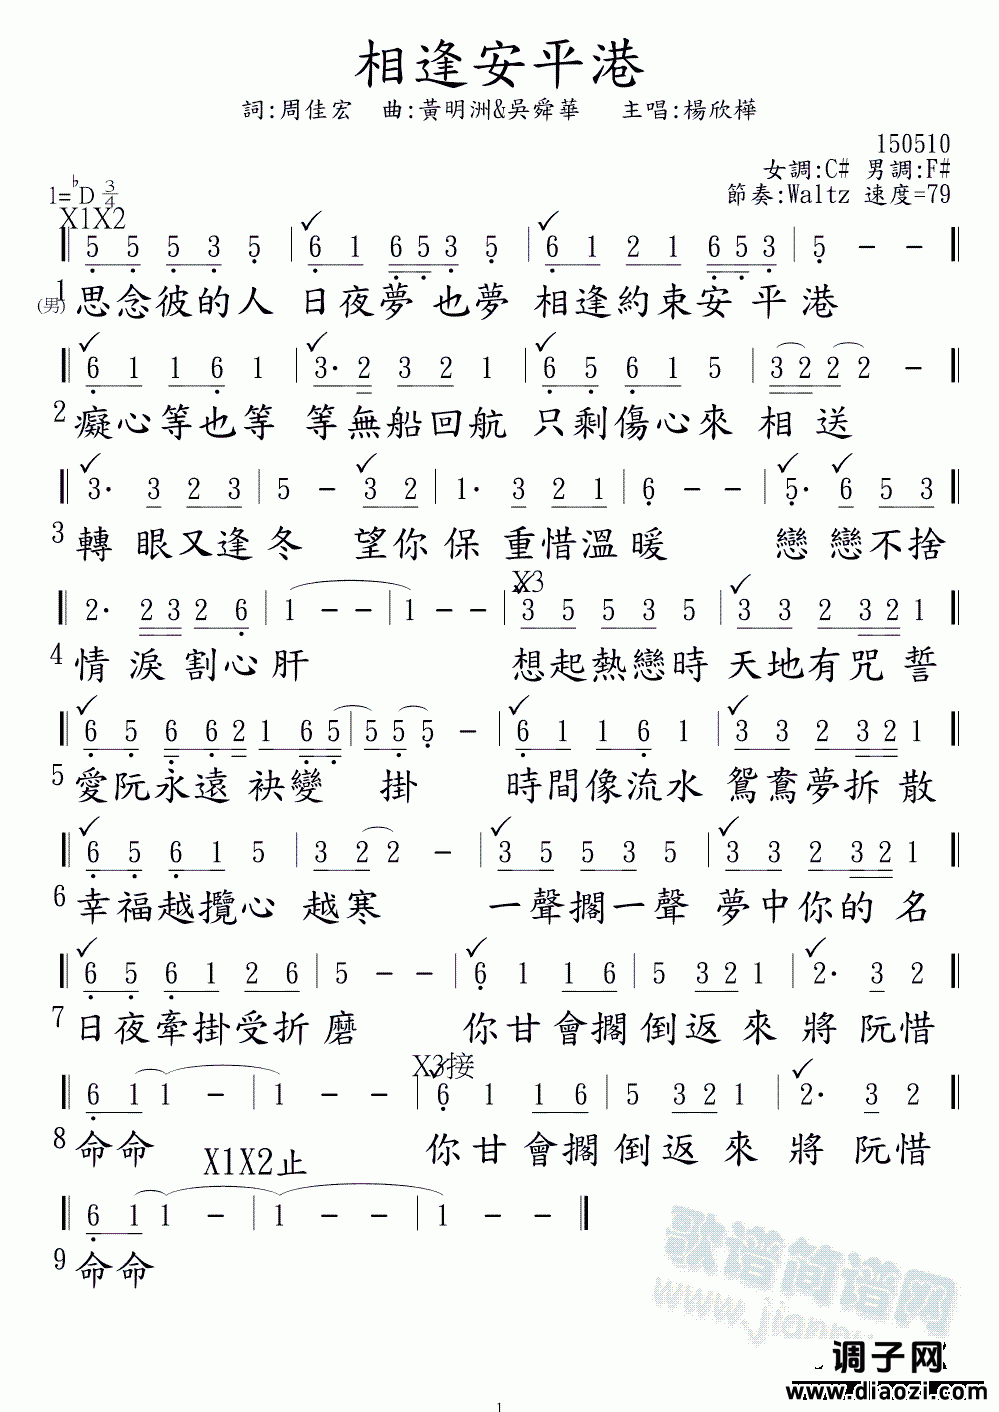 相逢安平港
詞:周佳宏 曲:黃明洲&吳舜華 主唱:楊欣樺
150510
女調:C# 男調:F#
1=♭D 3/4 節奏:Waltz 速度=79
X1X2
5 5 5 3 5 | 6 1 6 5 3 5 | 6 1 2 1 6 5 3 | 5 - -
1 (男) 思念彼的人 日夜夢也夢 相逢約束安平港
6 1 1 6 1 | 3· 2 3 2 1 | 6 5 6 1 5 | 3 2 2 2 -
2 癡心等也等 等無船回航 只剩傷心來相送
3· 3 2 3 | 5 - 3 2 | 1· 3 2 1 | 6 - - | 5· 6 5 3
3 轉眼又逢冬 望你保重惜溫暖 戀戀不捨
X3
2· 2 3 2 6 | 1 - - | 1 - - | 3 5 5 3 5 | 3 3 2 3 2 1
4 情淚割心肝 想起熱戀時 天地有咒誓
6 5 6 6 2 1 6 5 | 5 5 5 - | 6 1 1 6 1 | 3 3 2 3 2 1
5 愛阮永遠袂變掛 時間像流水 鴛鴦夢拆散
6 5 6 1 5 | 3 2 2 - | 3 5 5 3 5 | 3 3 2 3 2 1
6 幸福越攬心越寒 一聲擱一聲 夢中你的名
6 5 6 1 2 6 | 5 - - | 6 1 1 6 | 5 3 2 1 | 2· 3 2
7 日夜牽掛受折磨 你甘會擱倒返來 將阮惜
X3接
6 1 1 - | 1 - - | 6 1 1 6 | 5 3 2 1 | 2· 3 2
8 命命 你甘會擱倒返來 將阮惜
X1X2止
6 1 1 - | 1 - - | 1 -
9 命命
歌谱简谱网
www.jianpu
调子网
www.diaozi.com
1